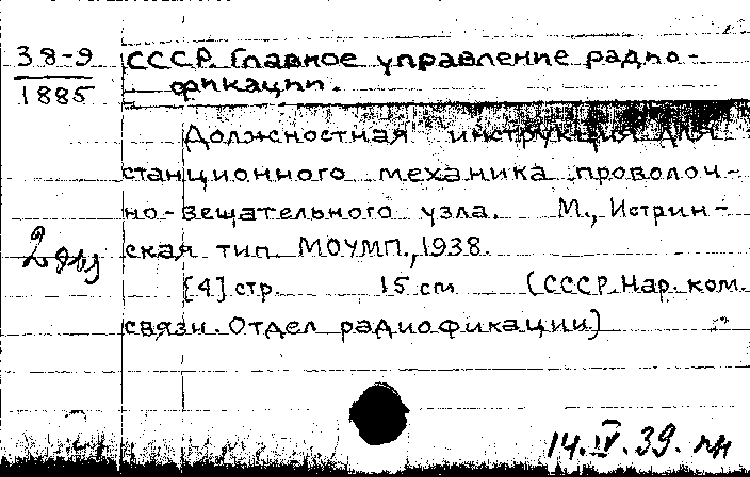 38-9
1885
СССР. Главное управление радио-
фикации.
Должностная инструкция для
станционного механика проволоч-
но-вещательного узла. М., Истрин-
ская тип. МОУМП., 1938.
[4] стр. 15 см (СССР. Нар. ком.
связи. Отдел радиофикации)
14.IV.39.